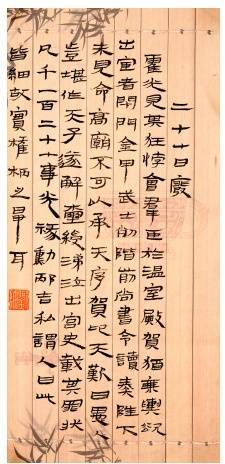 二十七日廢
霍光見其狂悖會羣臣於溫室殿賀猶乘輿從
出宦者閉門金甲武士陛階前尚書令讀奏陛下
未見命高廟不可以承天序賀仰天歎曰惡
豈堪作天子遂解璽綬涕泣出宮史載其罪狀
凡千一百二十七事光稼動邴吉私謂人曰此
皆細故實權柄之爭耳